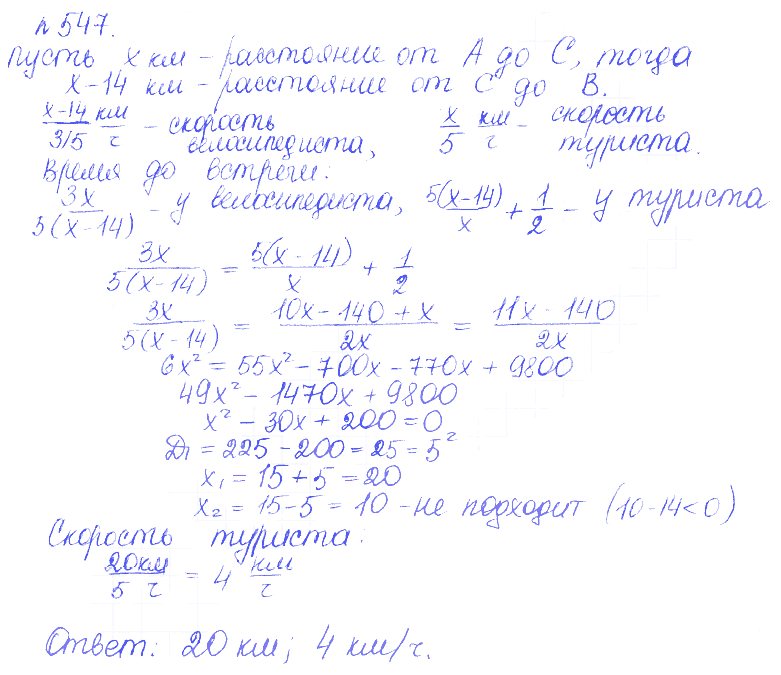 № 547.
Пусть x км – расстояние от A до C, тогда
x-14 км – расстояние от C до B.
(x-14)/(3/5) км/ч – скорость велосипедиста, x/5 км/ч – скорость туриста.
Время до встречи:
3x/(5(x-14)) – у велосипедиста, 5(x-14)/x + 1/2 – у туриста
3x/(5(x-14)) = 5(x-14)/x + 1/2
3x/(5(x-14)) = (10x-140+x)/2x = (11x-140)/2x
6x² = 55x² – 700x – 770x + 9800
49x² – 1470x + 9800
x² – 30x + 200 = 0
D₁ = 225 – 200 = 25 = 5²
x₁ = 15 + 5 = 20
x₂ = 15 – 5 = 10 – не подходит (10-14<0)
Скорость туриста:
20 км/5 ч = 4 км/ч
Ответ: 20 км; 4 км/ч.